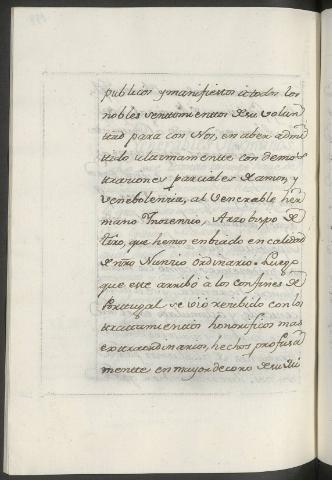 publicos y manifiestos à todos los
nobles sentimientos de su volun
tad para con Nos, en aber admi
tido ultimamente con demos
traciones parciales de amor, y
venebolencia, al Venerable her
mano Inocencio, Arzobispo de
tiro, que hemos enbiado en calidad
de nrõ Nuncio Ordinario. Luego
que este arribó à los confines de
Portugal se vió recibido con los
tratamientos honorificos mas
extraordinarios, hechos profusa
mente en mayor decoro de su Mi